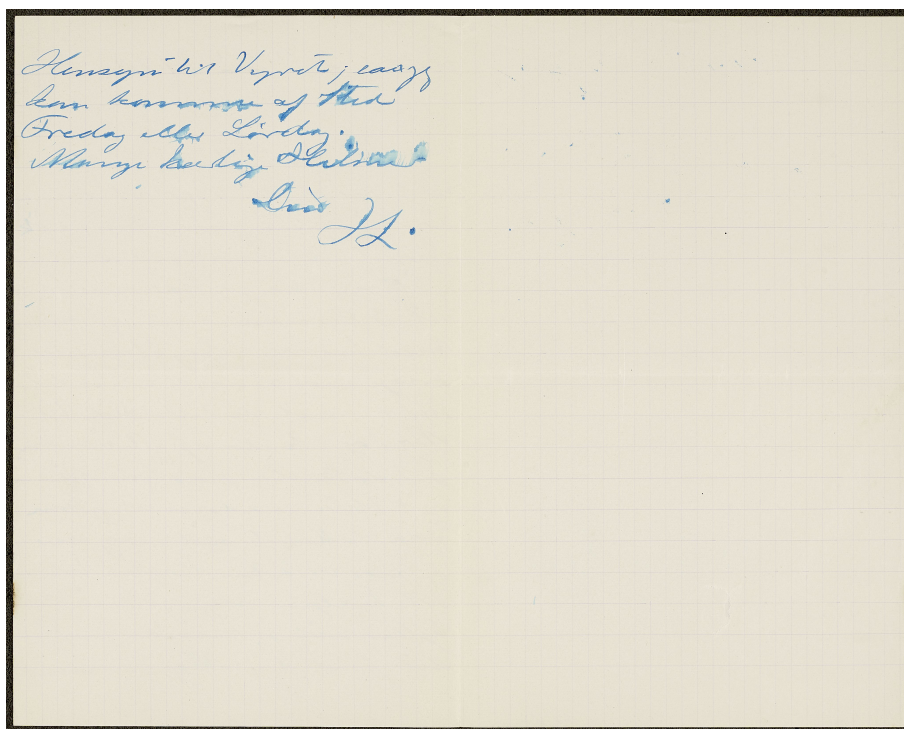 Hensyn til Vejret, saa jeg
kan komme af Sted
Fredag eller Lørdag.
Mange kærlige Hilsner
Din
JL.